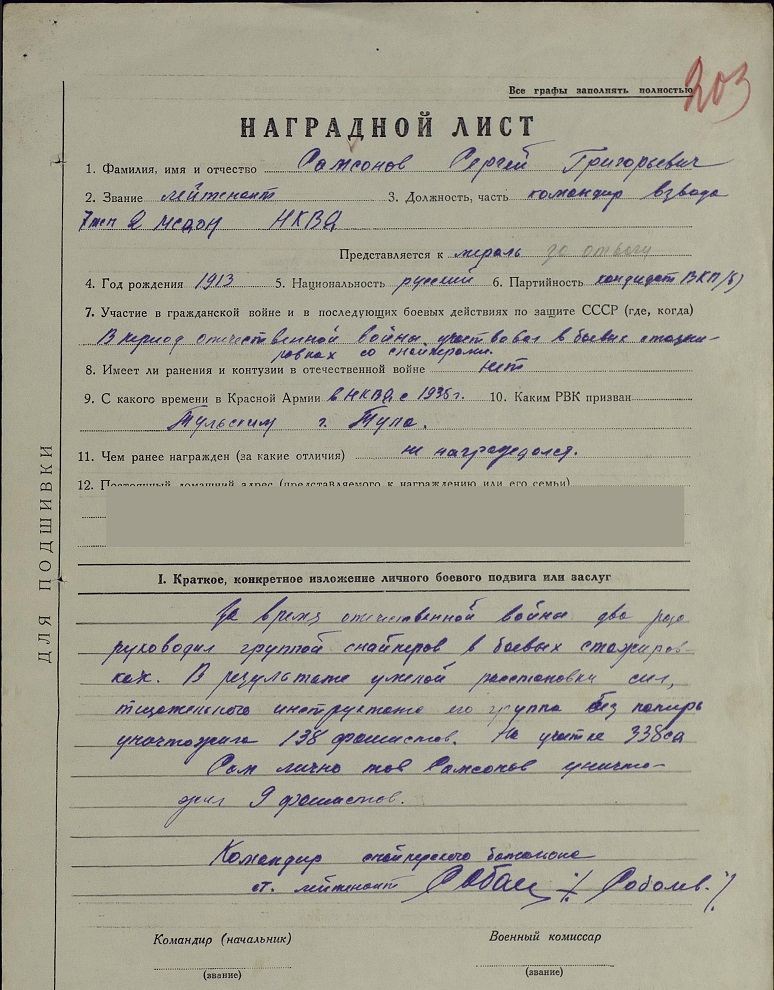 203
Все графы заполнять полностью
НАГРАДНОЙ ЛИСТ
1. Фамилия, имя и отчество Самсонов Сергей Григорьевич
2. Звание лейтенант 3. Должность, часть командир взвода
7 мсп 2 мсдон НКВД
Представляется к медаль за отвагу
4. Год рождения 1913 5. Национальность русский 6. Партийность кандидат ВКП/б)
7. Участие в гражданской войне и в последующих боевых действиях по защите СССР (где, когда)
В период отечественной войны участвовал в боевых стажи-
ровках со снайперами.
8. Имеет ли ранения и контузии в отечественной войне нет
9. С какого времени в Красной Армии в НКВД с 1935 г. 10. Каким РВК призван
Тульским г. Тула.
11. Чем ранее награжден (за какие отличия) не награждался.
12. Постоянный домашний адрес (представляемого к награждению или его семьи)
ДЛЯ ПОДШИВКИ
I. Краткое, конкретное изложение личного боевого подвига или заслуг
За время отечественной войны два раза
руководил группой снайперов в боевых стажиров-
ках. В результате умелой расстановки сил,
тщательного инструктажа его группа без потерь
уничтожила 138 фашистов. На участке 338 сд
Сам лично тов Самсонов уничто-
жил 9 фашистов.
Командир снайперского батальона
ст. лейтенант /Соболев./
Командир (начальник) Военный комиссар
(звание) (звание)